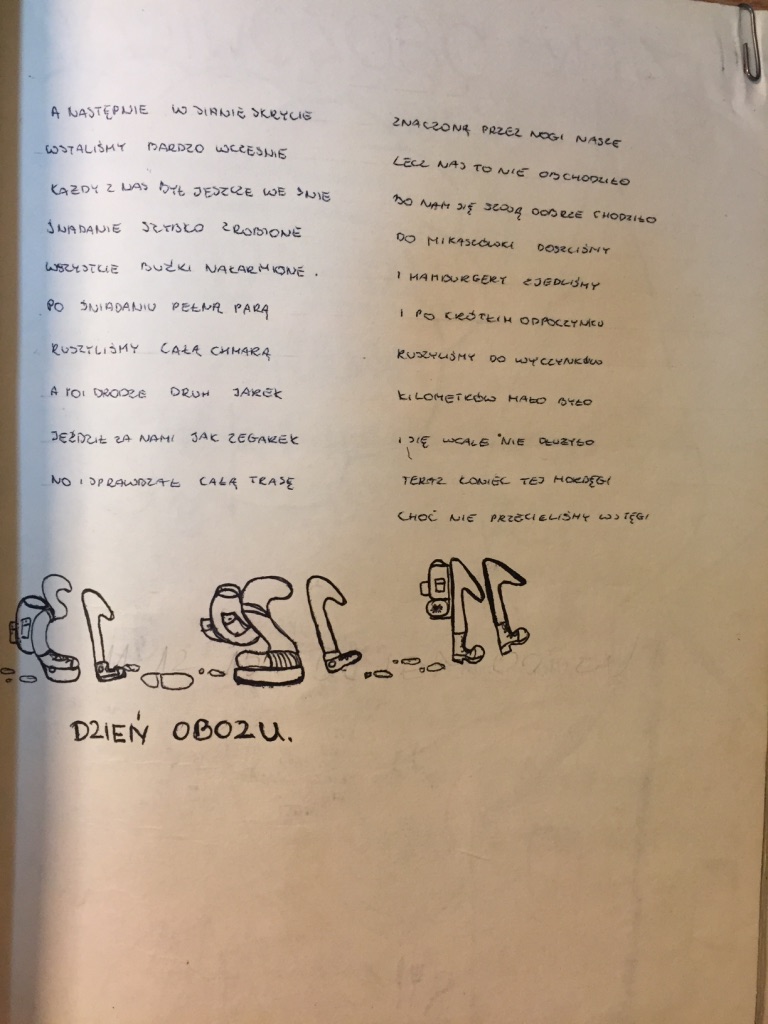 A NASTĘPNIE W SIANIE SKRYCIE
WSTALIŚMY BARDZO WCZEŚNIE
KAŻDY Z NAS BYŁ JESZCZE WE ŚNIE
ŚNADANIE SZYBKO ZROBIONE
WSZYSTKIE BUŹKI NAKARMIONE.
PO ŚNIADANIU PEŁNĄ PARĄ
RUSZYLIŚMY CAŁĄ CHMARĄ
A POI DRODZE DRUH JAREK
JEŹDZIŁ ZA NAMI JAK ZEGAREK
NO I SPRAWDZAŁ CAŁĄ TRASĘ
ZNACZONĄ PRZEZ NOGI NASZE
LECZ NAS TO NIE OBCHODZIŁO
BO NAM SIĘ DOBRZE CHODZIŁO
DO MIKASZÓWKI DOSZLIŚMY
I HAMBURGERY ZJEDLIŚMY
I PO KRÓTKIM ODPOCZYNKU
RUSZYLIŚMY DO WYCZYNKÓW
KILOMETRÓW MAŁO BYŁO
I SIĘ WCALE NIE DŁUŻYŁO
TERAZ KONIEC TEJ MORDĘGI
CHOĆ NIE PRZECIELIŚMY WSTĘGI
13 12 11
DZIEŃ OBOZU.